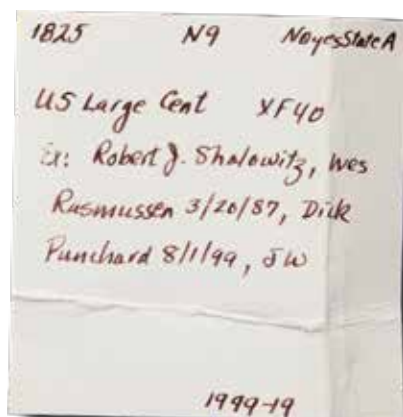 1825 N9 Noyes State A
US Large Cent XF40
Ex: Robert J. Shalowitz, Wes
Rasmussen 3/20/87, Dick
Punchard 8/1/99, JW
1999-19